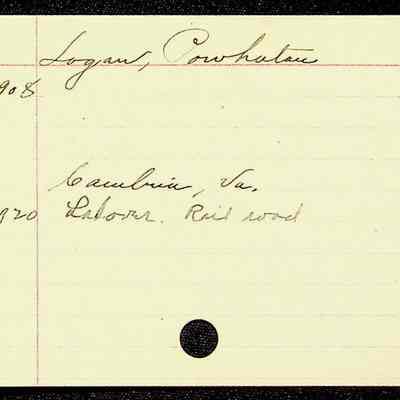 Logan, Powhatan
908
Cambria, Va.
920 Laborer. Rail road